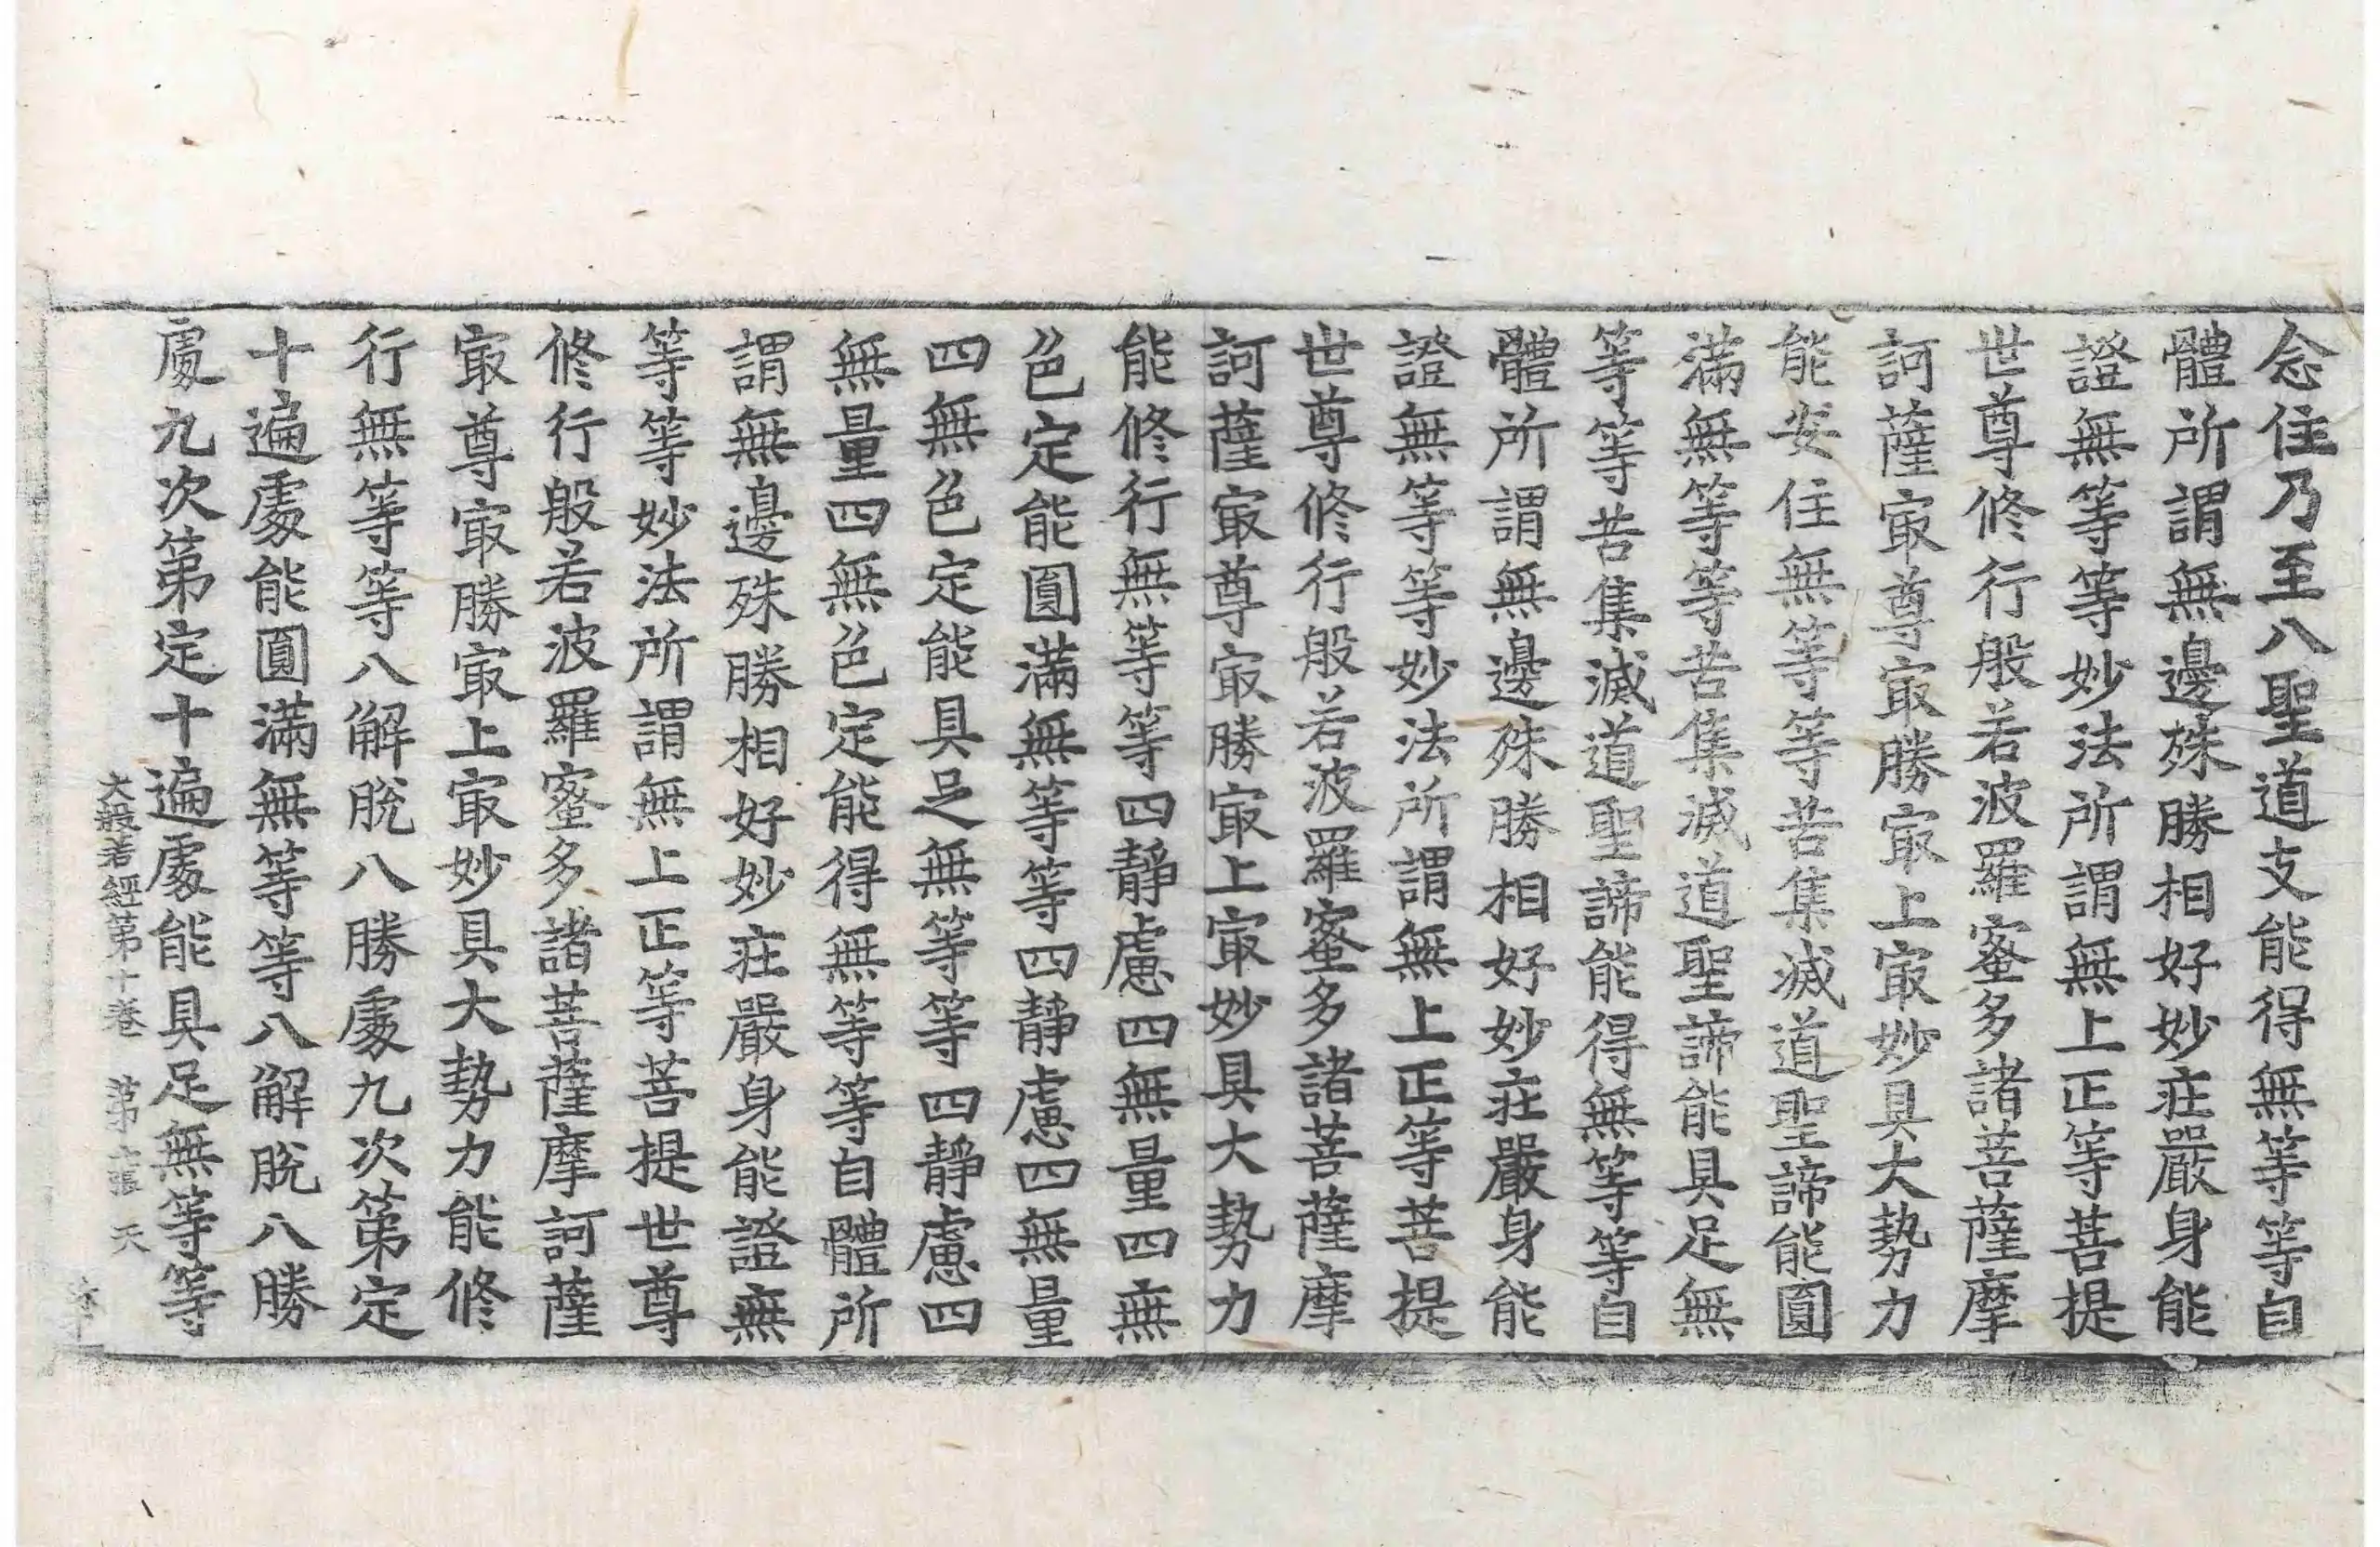 念住乃至八聖道支能得無等等自
體所謂無邊殊勝相好妙莊嚴身能
證無等等妙法所謂無上正等菩提
世尊修行般若波羅蜜多諸菩薩摩
訶薩㝡尊㝡勝㝡上㝡妙具大勢力
能安住無等等苦集滅道聖諦能圓
滿無等等苦集滅道聖諦能具足無
等等苦集滅道聖諦能得無等等自
體所謂無邊殊勝相好妙莊嚴身能
證無等等妙法所謂無上正等菩提
世尊修行般若波羅蜜多諸菩薩摩
訶薩㝡尊㝡勝㝡上㝡妙具大勢力
能修行無等等四靜慮四無量四無
色定能圓滿無等等四靜慮四無量
四無色定能具足無等等四靜慮四
無量四無色定能得無等等自體所
謂無邊殊勝相好妙莊嚴身能證無
等等妙法所謂無上正等菩提世尊
修行般若波羅蜜多諸菩薩摩訶薩
㝡尊㝡勝㝡上㝡妙具大勢力能修
行無等等八解脫八勝處九次第定
十遍處能圓滿無等等八解脫八勝
處九次第定十遍處能具足無等等
大般若經第十卷 第 張 天